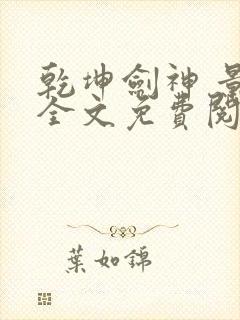 乾坤劍神
全文免費閱
葉如錦